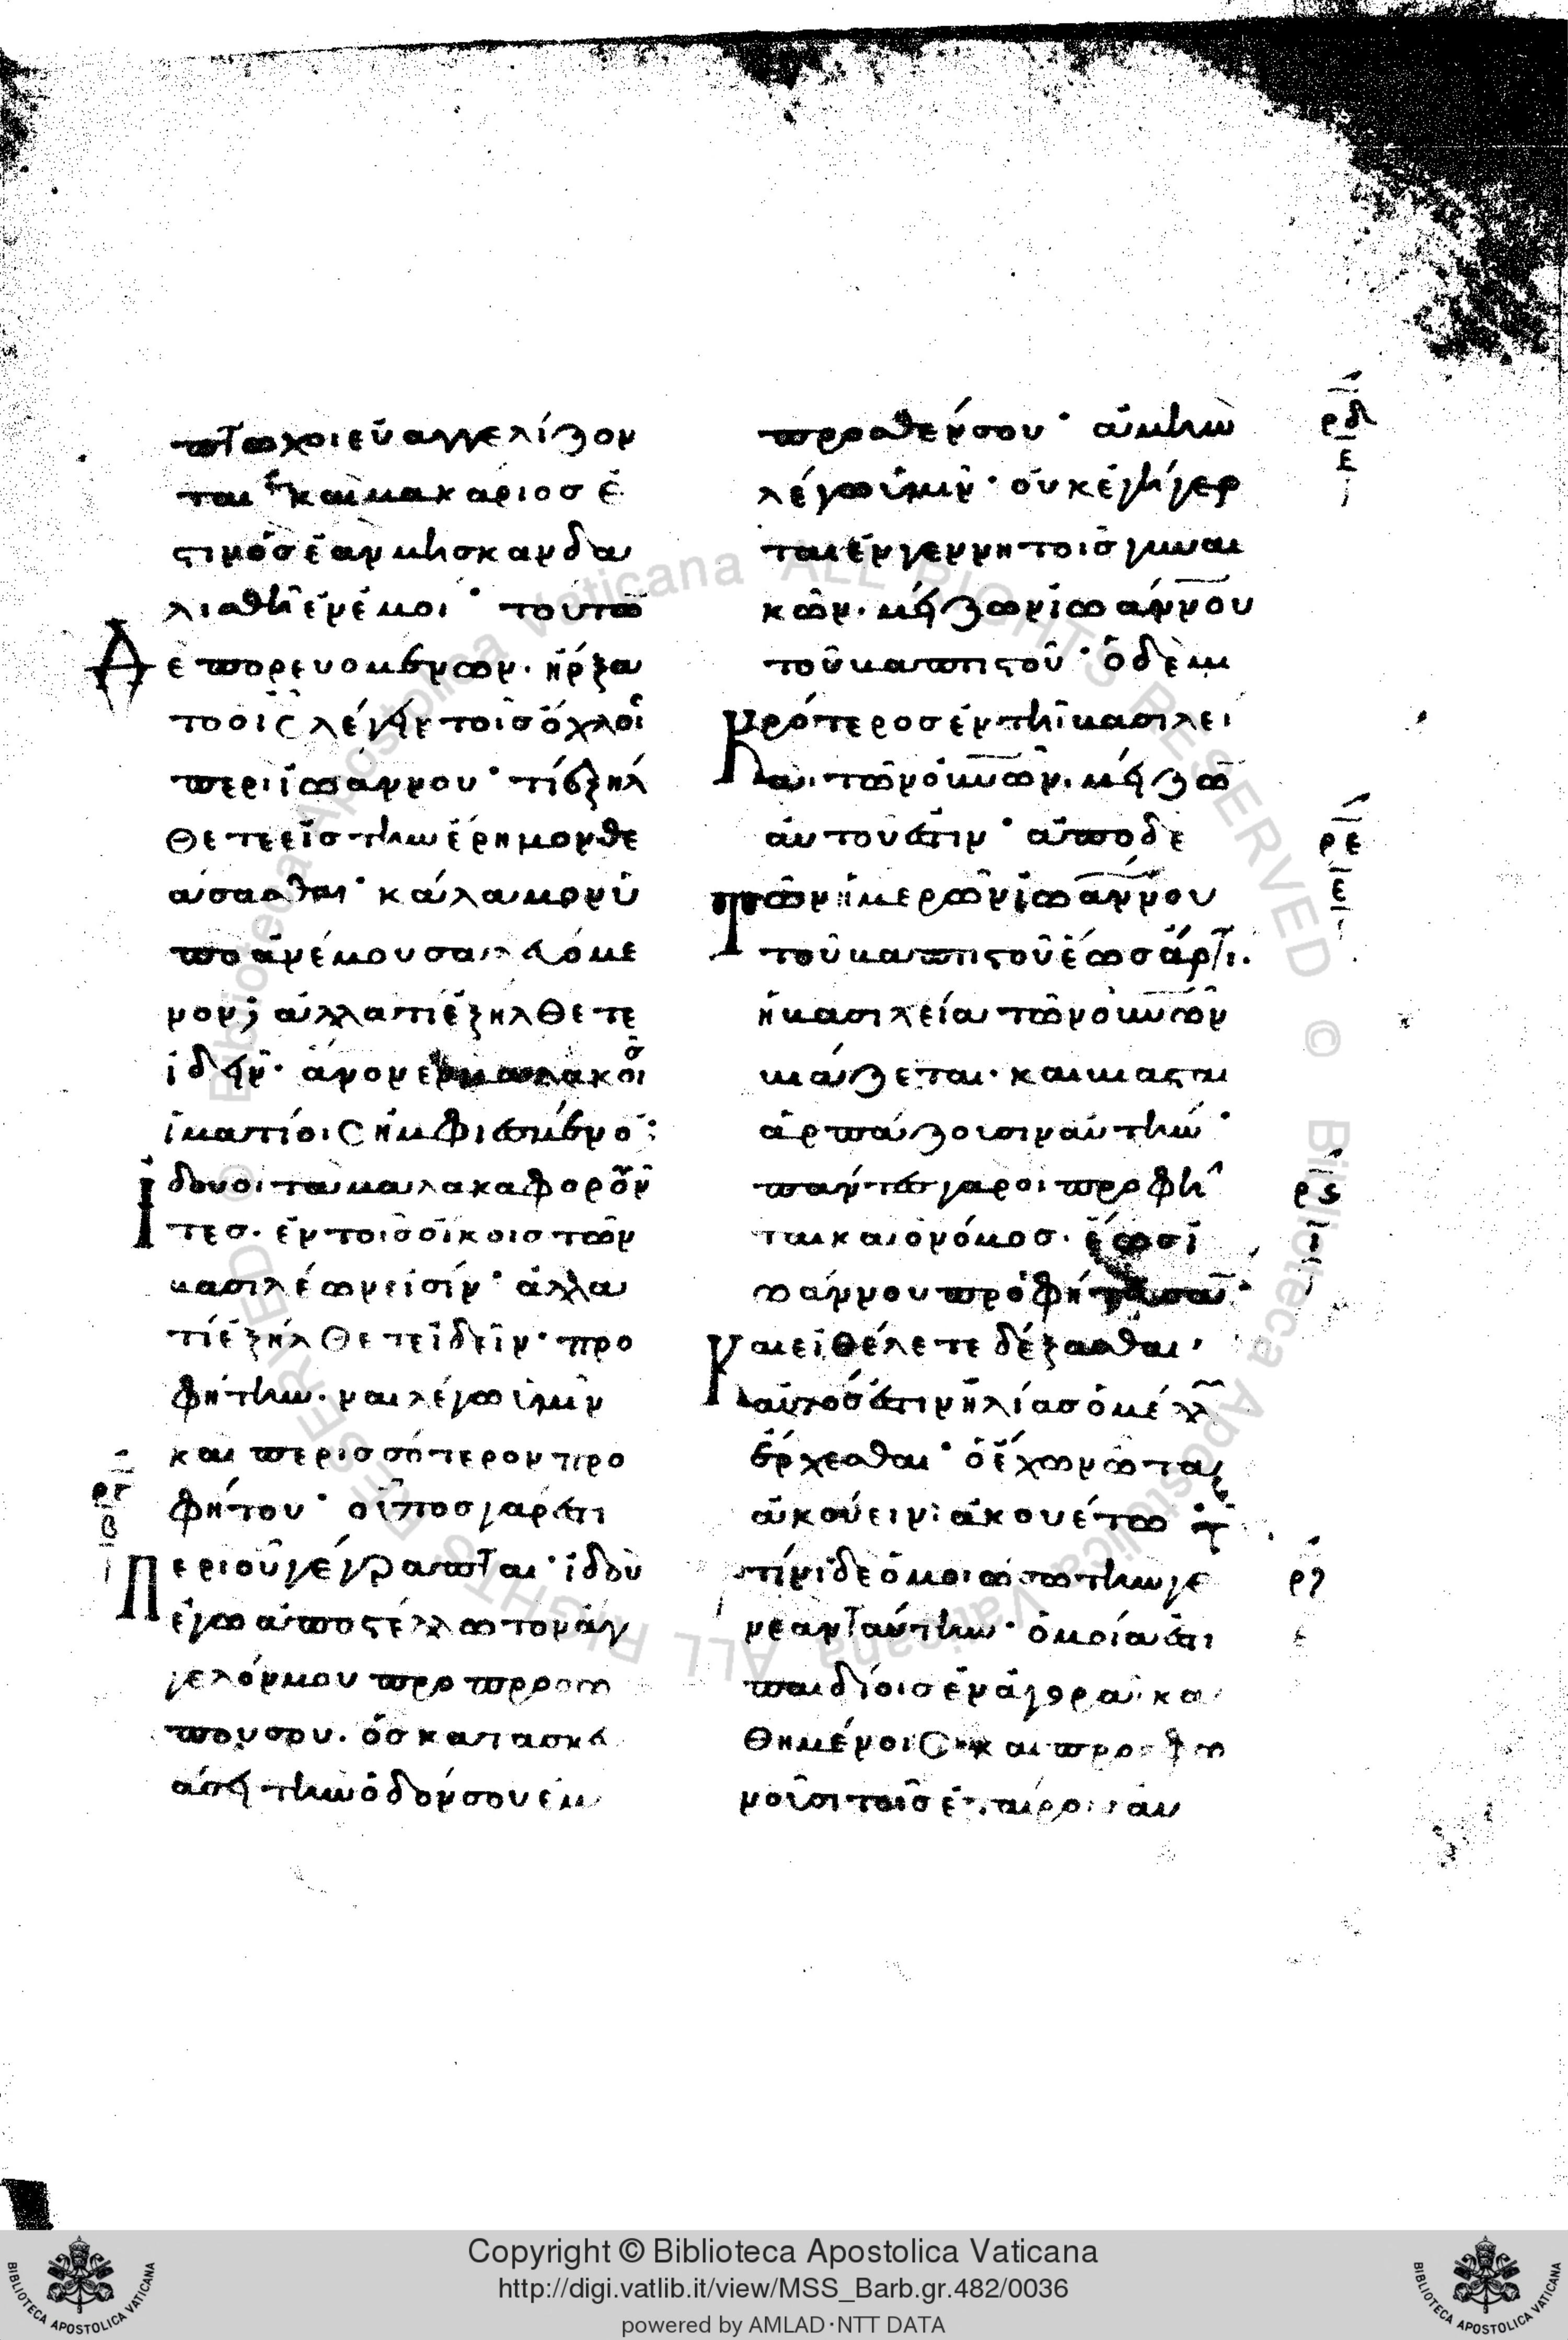 πτωχοὶ εὐαγγελίζον
ται καὶ μακάριος ἐ
στιν ὃς ἐὰν μὴ σκανδα
λισθῆ ἐν ἐμοί· τούτων
δὲ πορευομένων· ἤρξα
το ὁ ις λέγειν τοῖς ὄχλοις
περὶ ἰωάννου· τί ἐξήλ
θετε εἰς τὴν ἔρημον θε
άσασθαι· κάλαμον ὑ
πὸ ἀνέμου σαλευόμε
νον; ἀλλὰ τί ἐξήλθετε
ἰδεῖν· ἄνον ἐν μαλακοῖς
ἱματίοις ἠμφιεσμένον;
ἰδοὺ οἱ τὰ μαλακὰ φοροῦν
τες· ἐν τοῖς οἴκοις τῶν
βασιλέων εἰσίν· ἀλλὰ
τί ἐξήλθετε ἰδεῖν· προ
φήτην· ναὶ λέγω ὑμῖν
καὶ περισσότερον προ
ργ
φήτου· οὗτος γάρ ἐστι
β
περὶ οὗ γέγραπται· ἰδοὺ
ἐγὼ ἀποστέλλω τὸν ἄγ
γελόν μου πρὸ προσώ
που σου· ὃς κατασκευ
άσει τὴν ὁδόν σου ἔμ
προσθέν σου· ἀμὴν
ρδ
λέγω ὑμῖν· οὐκ ἐγήγερ
ε
ται ἐν γεννητοῖς γυναι
κῶν· μείζων ἰωάννου
τοῦ βαπτιστοῦ· ὁ δὲ μι
κρότερος ἐν τῆ βασιλεί
α τῶν οὐνῶν· μείζων
αὐτοῦ ἐστιν· ἀπὸ δὲ
ρε
τῶν ἡμερῶν ἰωάννου
ε
τοῦ βαπτιστοῦ ἕως ἄρτι·
ἡ βασιλεία τῶν οὐνῶν
βιάζεται· καὶ βιασταὶ
ἁρπάζουσιν αὐτήν·
πάντες γὰρ οἱ προφῆ
ρς
ται καὶ ὁ νόμος· ἕως ἰ
ι
ωάννου προεφήτευσαν·
καὶ εἰ θέλετε δέξασθαι,
αὐτός ἐστιν ἠλίας ὁ μέλλων
ἔρχεσθαι· ὁ ἔχων ὦτα
ἀκούειν· ἀκουέτω
τίνι δὲ ὁμοιώσω τὴν γε
ρζ
νεὰν ταύτην· ὁμοία ἐστὶ
ε
παιδίοις ἐν ἀγορᾶ κα
θημένοις· καὶ προσφω
νοῦσι τοῖς ἑταίροις αὐ
Copyright © Biblioteca Apostolica Vaticana
http://digi.vatlib.it/view/MSS_Barb.gr.482/0036
powered by AMLAD·NTT DATA
BIBLIOTECA APOSTOLICA VATICANA
BIBLIOTECA APOSTOLICA VATICANA